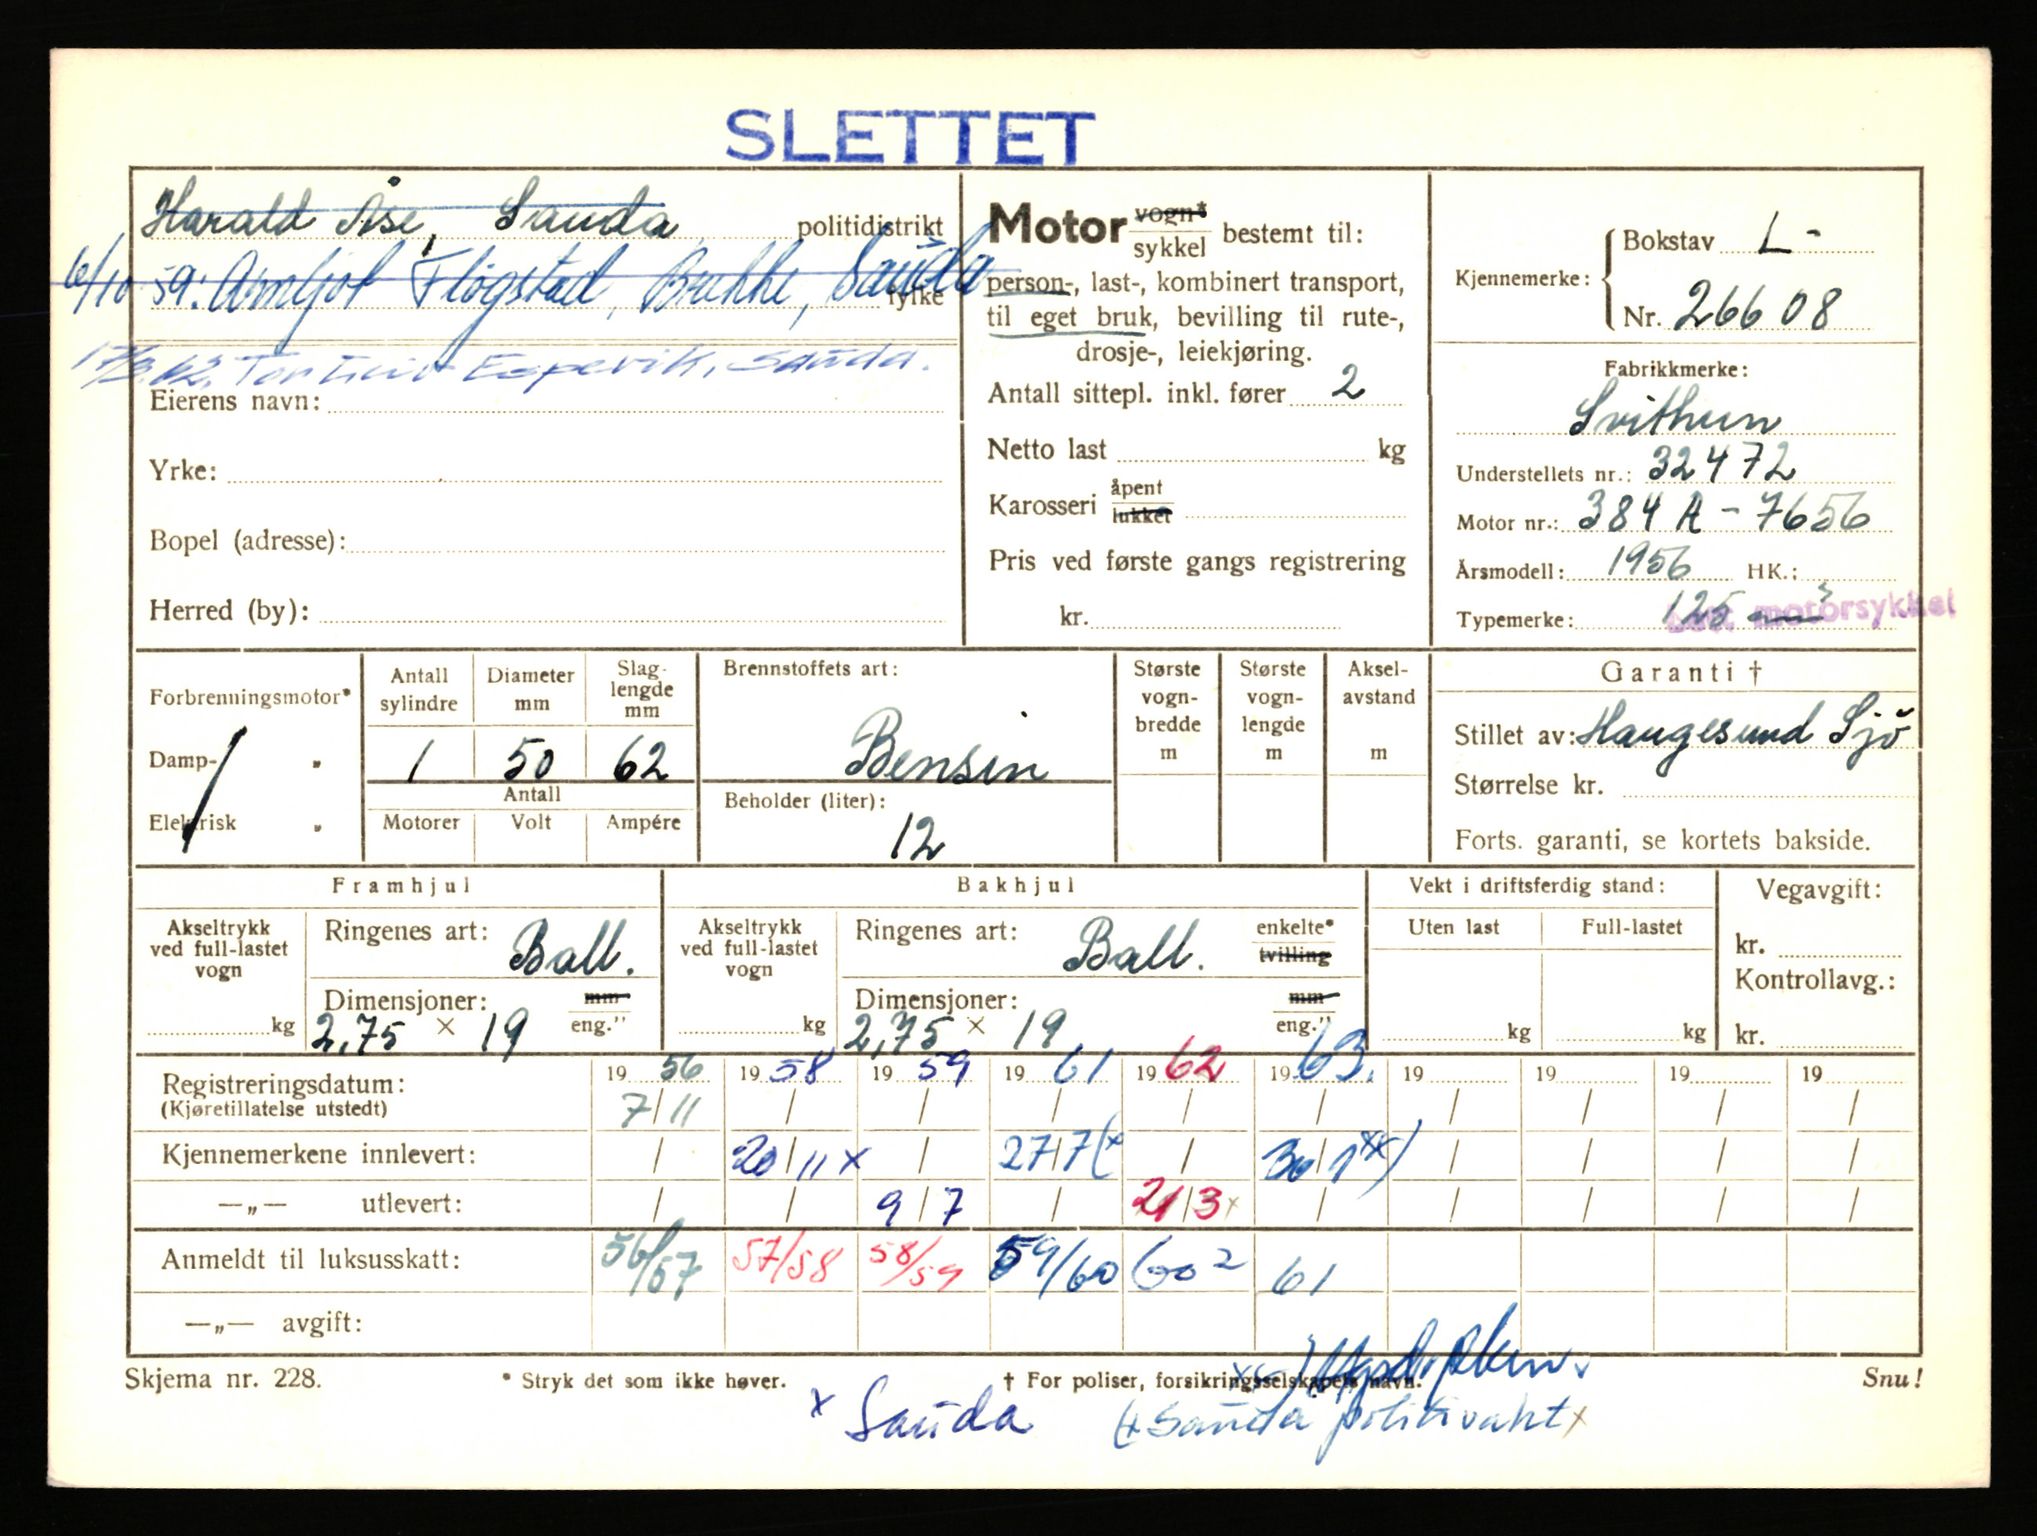 SLETTET
Harald Åse, Sauda politidistrikt
6/10 59: Arnljot Fløgstad, Brekke, Sauda fylke
17/3.62. Espevik, Sauda.
Eierens navn:
Yrke:
Bopel (adresse):
Herred (by):
Motor vogn* sykkel bestemt til:
person-, last-, kombinert transport,
til eget bruk, bevilling til rute-,
drosje-, leiekjøring.
Antall sittepl. inkl. fører 2
Netto last kg
Karosseri åpent lukket
Pris ved første gangs registrering
kr.
Kjennemerke: Bokstav L-
Nr. 26608
Fabrikkmerke:
Svithun
Understellets nr.: 32472
Motor nr.: 384 A - 7656
Årsmodell: 1956 HK.:
Typemerke: 125 cm3 motorsykkel
Forbrenningsmotor*
Damp- "
Elektrisk "
Antall sylindre Diameter mm Slaglengde mm
1 50 62
Antall
Motorer Volt Ampére
Brennstoffets art:
Bensin
Beholder (liter):
12
Største vognbredde m
Største vognlengde m
Akselavstand m
Garanti †
Stillet av: Haugesund Sjø
Størrelse kr.
Forts. garanti, se kortets bakside.
Framhjul
Akseltrykk ved full-lastet vogn kg
Ringenes art: Ball.
Dimensjoner: mm eng."
2,75 × 19
Bakhjul
Akseltrykk ved full-lastet vogn kg
Ringenes art: Ball. enkelte* tvilling
Dimensjoner: mm eng."
2,75 × 19
Vekt i driftsferdig stand:
Uten last Full-lastet
kg kg
Vegavgift:
kr.
Kontrollavg.:
kr.
Registreringsdatum: 19 56 19 58 19 59 19 61 19 62 19 63. 19 19 19 19
(Kjøretillatelse utstedt) 7/11 / / / / / / / / /
Kjennemerkene innlevert: / 20/11 x / 27/7 (x / 30/1 xx) / / / /
—„— utlevert: / / 9/7 / 21/3 x / / / / /
Anmeldt til luksusskatt: 56/57 57/58 58/59 59/60 60 2 61
—„— avgift:
Skjema nr. 228. * Stryk det som ikke høver. † For poliser, forsikringsselskapets navn. Snu!
x Sauda (x Sauda politivakt x